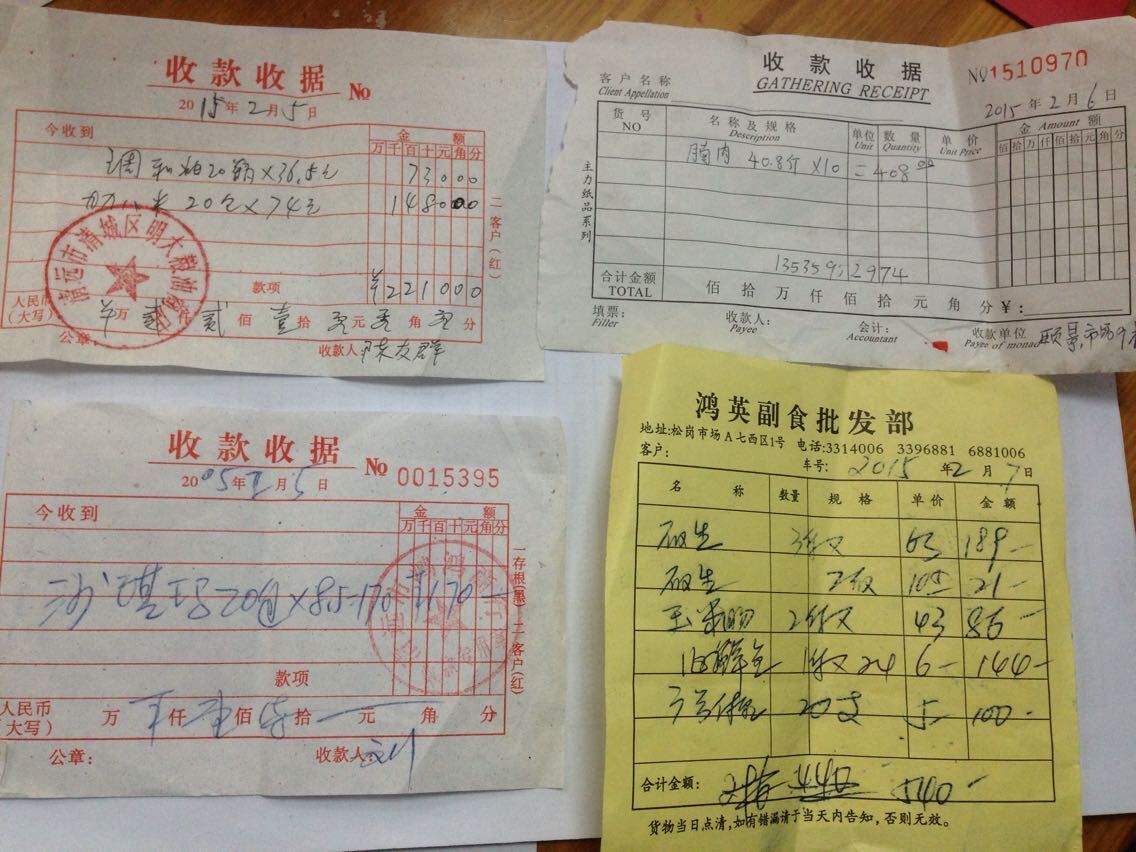 收款收据 No
2015年2月5日
今收到
金额
万千百十元角分
调和油20瓶×36.5元 73000
20包×74元 148000
二客户(红)
清远市清城区明太粮油
款项 ¥221000
人民币(大写) 万贰仟贰佰壹拾零元零角零分
公章:
收款人 陈友群
收款收据
GATHERING RECEIPT
NO 1510970
客户名称
Client Appellation
2015年2月6日
货号 NO
名称及规格 Description
单位 Unit
数量 Quantity
单价 Unit Price
金 Amount 额
佰拾万仟佰拾元角分
腩肉 40.8斤×10=408.00
主力纸品系列
13535912974
合计金额 TOTAL
佰拾万仟佰拾元角分¥:
填票: Filler
收款人: Payee
会计: Accountant
收款单位 Payee of monad 颐景市场
收款收据 No 0015395
2005年2月5日
今收到
金额
万千百十元角分
20包×85=170 ¥170
一存根(黑) 二客户(红)
款项
人民币(大写) 万仟壹佰拾元角分
公章:
收款人:
鸿英副食批发部
地址:松岗市场A七西区1号 电话:3314006 3396881 6881006
客户: 车号: 2015年2月7日
名称 数量 规格 单价 金额
3 63 189-
2 105 21-
玉米 2 43 86-
1 24 6- 144-
20支 5- 100-
合计金额: 440 540-
货物当日点清,如有错漏请于当天内告知,否则无效。